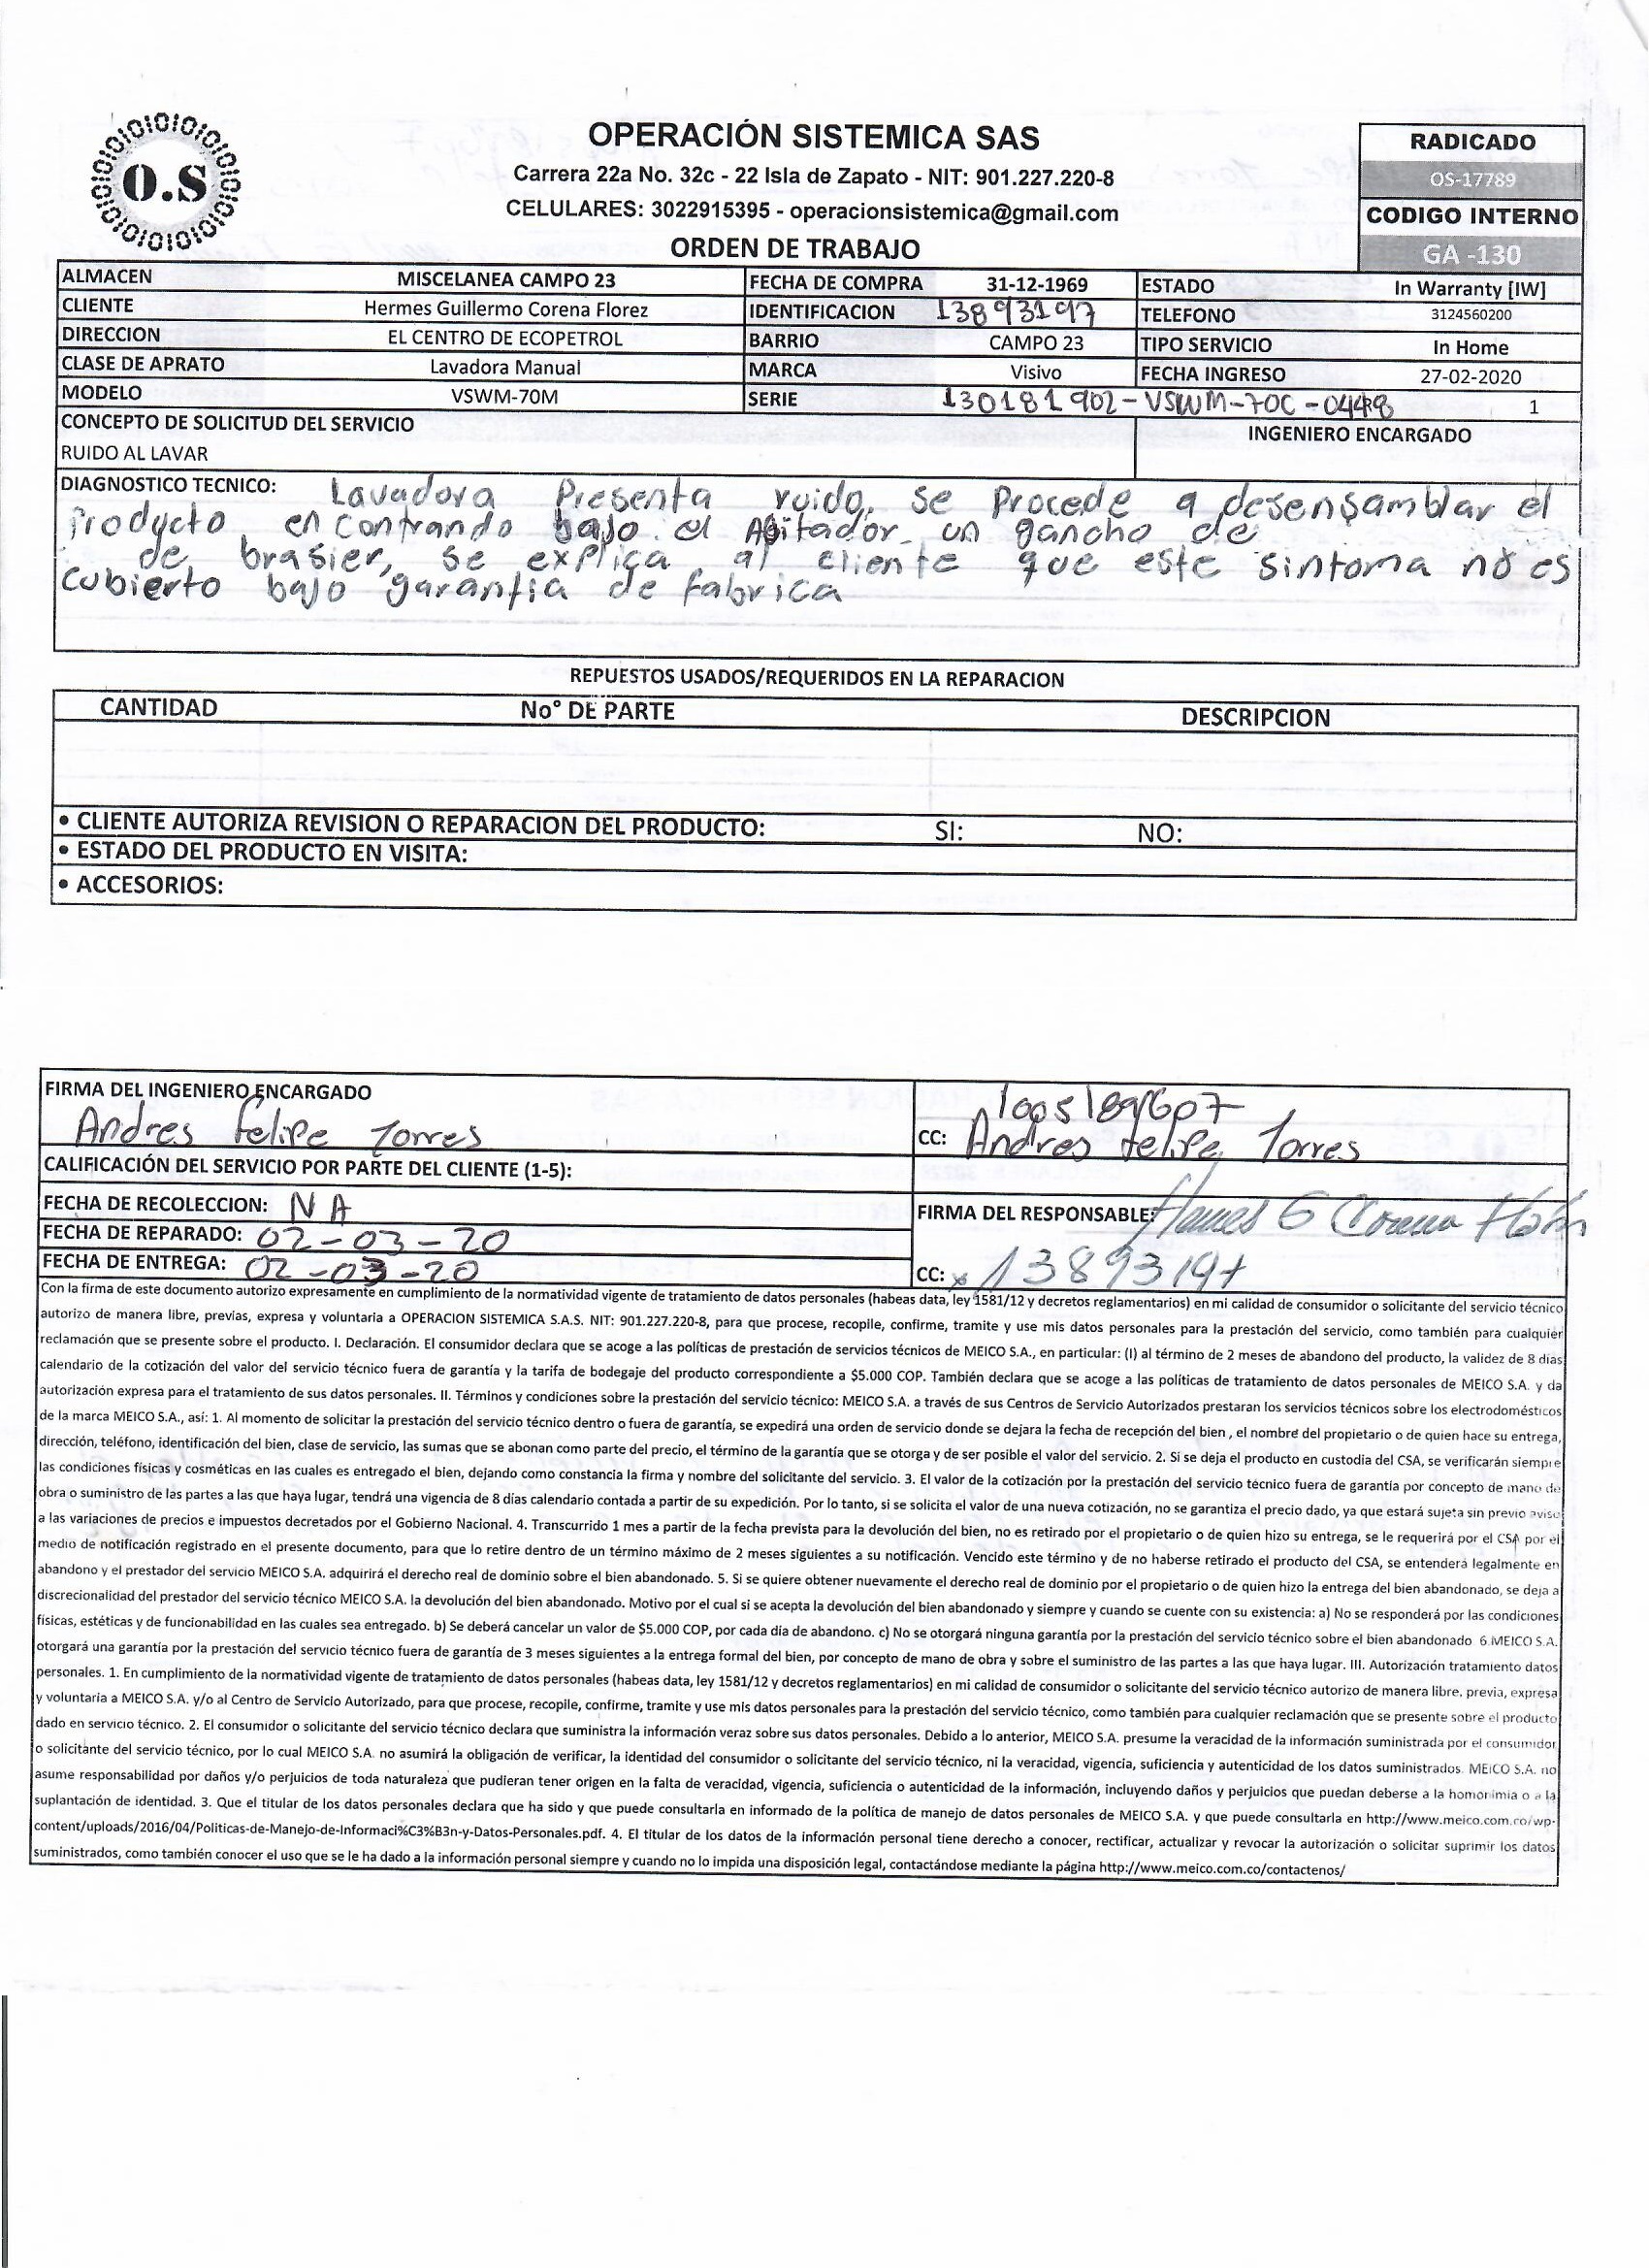 O.S
OPERACIÓN SISTEMICA SAS
Carrera 22a No. 32c - 22 Isla de Zapato - NIT: 901.227.220-8
CELULARES: 3022915395 - operacionsistemica@gmail.com
ORDEN DE TRABAJO
RADICADO
OS-17789
CODIGO INTERNO
GA -130
ALMACEN MISCELANEA CAMPO 23 FECHA DE COMPRA 31-12-1969 ESTADO In Warranty [IW]
CLIENTE Hermes Guillermo Corena Florez IDENTIFICACION 13893197 TELEFONO 3124560200
DIRECCION EL CENTRO DE ECOPETROL BARRIO CAMPO 23 TIPO SERVICIO In Home
CLASE DE APRATO Lavadora Manual MARCA Visivo FECHA INGRESO 27-02-2020
MODELO VSWM-70M SERIE 130181902-VSWM-70C-0448 1
CONCEPTO DE SOLICITUD DEL SERVICIO INGENIERO ENCARGADO
RUIDO AL LAVAR
DIAGNOSTICO TECNICO: Lavadora Presenta ruido, se Procede a desensamblar el
Producto encontrando bajo el Agitador un gancho de
de brasier, se explica al cliente que este sintoma no es
cubierto bajo garantia de fabrica
REPUESTOS USADOS/REQUERIDOS EN LA REPARACION
CANTIDAD No° DE PARTE DESCRIPCION
• CLIENTE AUTORIZA REVISION O REPARACION DEL PRODUCTO: SI: NO:
• ESTADO DEL PRODUCTO EN VISITA:
• ACCESORIOS:
FIRMA DEL INGENIERO ENCARGADO
Andres Felipe Torres
1005189607
CC: Andres Felipe Torres
CALIFICACIÓN DEL SERVICIO POR PARTE DEL CLIENTE (1-5):
FECHA DE RECOLECCION: NA
FECHA DE REPARADO: 02-03-20
FECHA DE ENTREGA: 02-03-20
FIRMA DEL RESPONSABLE: G Corena
CC: x 13893197
Con la firma de este documento autorizo expresamente en cumplimiento de la normatividad vigente de tratamiento de datos personales (habeas data, ley 1581/12 y decretos reglamentarios) en mi calidad de consumidor o solicitante del servicio técnico
autorizo de manera libre, previas, expresa y voluntaria a OPERACION SISTEMICA S.A.S. NIT: 901.227.220-8, para que procese, recopile, confirme, tramite y use mis datos personales para la prestación del servicio, como también para cualquier
reclamación que se presente sobre el producto. I. Declaración. El consumidor declara que se acoge a las políticas de prestación de servicios técnicos de MEICO S.A., en particular: (I) al término de 2 meses de abandono del producto, la validez de 8 días
calendario de la cotización del valor del servicio técnico fuera de garantía y la tarifa de bodegaje del producto correspondiente a $5.000 COP. También declara que se acoge a las políticas de tratamiento de datos personales de MEICO S.A. y da
autorización expresa para el tratamiento de sus datos personales. II. Términos y condiciones sobre la prestación del servicio técnico: MEICO S.A. a través de sus Centros de Servicio Autorizados prestaran los servicios técnicos sobre los electrodomésticos
de la marca MEICO S.A., así: 1. Al momento de solicitar la prestación del servicio técnico dentro o fuera de garantía, se expedirá una orden de servicio donde se dejara la fecha de recepción del bien , el nombre del propietario o de quien hace su entrega,
dirección, teléfono, identificación del bien, clase de servicio, las sumas que se abonan como parte del precio, el término de la garantía que se otorga y de ser posible el valor del servicio. 2. Si se deja el producto en custodia del CSA, se verificarán siempre
las condiciones físicas y cosméticas en las cuales es entregado el bien, dejando como constancia la firma y nombre del solicitante del servicio. 3. El valor de la cotización por la prestación del servicio técnico fuera de garantía por concepto de mano de
obra o suministro de las partes a las que haya lugar, tendrá una vigencia de 8 días calendario contada a partir de su expedición. Por lo tanto, si se solicita el valor de una nueva cotización, no se garantiza el precio dado, ya que estará sujeta sin previo aviso
a las variaciones de precios e impuestos decretados por el Gobierno Nacional. 4. Transcurrido 1 mes a partir de la fecha prevista para la devolución del bien, no es retirado por el propietario o de quien hizo su entrega, se le requerirá por el CSA por el
medio de notificación registrado en el presente documento, para que lo retire dentro de un término máximo de 2 meses siguientes a su notificación. Vencido este término y de no haberse retirado el producto del CSA, se entenderá legalmente en
abandono y el prestador del servicio MEICO S.A. adquirirá el derecho real de dominio sobre el bien abandonado. 5. Si se quiere obtener nuevamente el derecho real de dominio por el propietario o de quien hizo la entrega del bien abandonado, se deja a
discrecionalidad del prestador del servicio técnico MEICO S.A. la devolución del bien abandonado. Motivo por el cual si se acepta la devolución del bien abandonado y siempre y cuando se cuente con su existencia: a) No se responderá por las condiciones
físicas, estéticas y de funcionabilidad en las cuales sea entregado. b) Se deberá cancelar un valor de $5.000 COP, por cada día de abandono. c) No se otorgará ninguna garantía por la prestación del servicio técnico sobre el bien abandonado 6 MEICO S.A.
otorgará una garantía por la prestación del servicio técnico fuera de garantía de 3 meses siguientes a la entrega formal del bien, por concepto de mano de obra y sobre el suministro de las partes a las que haya lugar. III. Autorización tratamiento datos
personales. 1. En cumplimiento de la normatividad vigente de tratamiento de datos personales (habeas data, ley 1581/12 y decretos reglamentarios) en mi calidad de consumidor o solicitante del servicio técnico autorizo de manera libre, previa, expresa
y voluntaria a MEICO S.A. y/o al Centro de Servicio Autorizado, para que procese, recopile, confirme, tramite y use mis datos personales para la prestación del servicio técnico, como también para cualquier reclamación que se presente sobre el producto
dado en servicio técnico. 2. El consumidor o solicitante del servicio técnico declara que suministra la información veraz sobre sus datos personales. Debido a lo anterior, MEICO S.A. presume la veracidad de la información suministrada por el consumidor
o solicitante del servicio técnico, por lo cual MEICO S.A. no asumirá la obligación de verificar, la identidad del consumidor o solicitante del servicio técnico, ni la veracidad, vigencia, suficiencia y autenticidad de los datos suministrados. MEICO S.A. no
asume responsabilidad por daños y/o perjuicios de toda naturaleza que pudieran tener origen en la falta de veracidad, vigencia, suficiencia o autenticidad de la información, incluyendo daños y perjuicios que puedan deberse a la homonimia o a la
suplantación de identidad. 3. Que el titular de los datos personales declara que ha sido y que puede consultarla en informado de la política de manejo de datos personales de MEICO S.A. y que puede consultarla en http://www.meico.com.co/wp-
content/uploads/2016/04/Politicas-de-Manejo-de-Informaci%C3%B3n-y-Datos-Personales.pdf. 4. El titular de los datos de la información personal tiene derecho a conocer, rectificar, actualizar y revocar la autorización o solicitar suprimir los datos
suministrados, como también conocer el uso que se le ha dado a la información personal siempre y cuando no lo impida una disposición legal, contactándose mediante la página http://www.meico.com.co/contactenos/